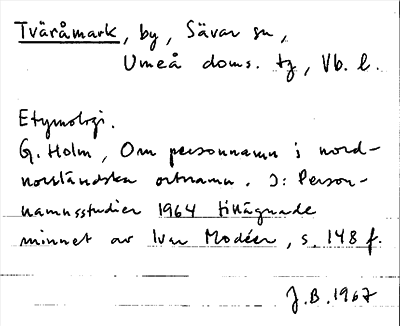 Tväråmark, by, Sävar sn,
Umeå doms. tg, Vb. l.
Etymologi.
G. Holm, Om personnamn i nord-
norsländska ortnamn. I: Person-
namnsstudier 1964 tillägnade
minnet av Ivar Modéer, s. 148 f.
J.B. 1967